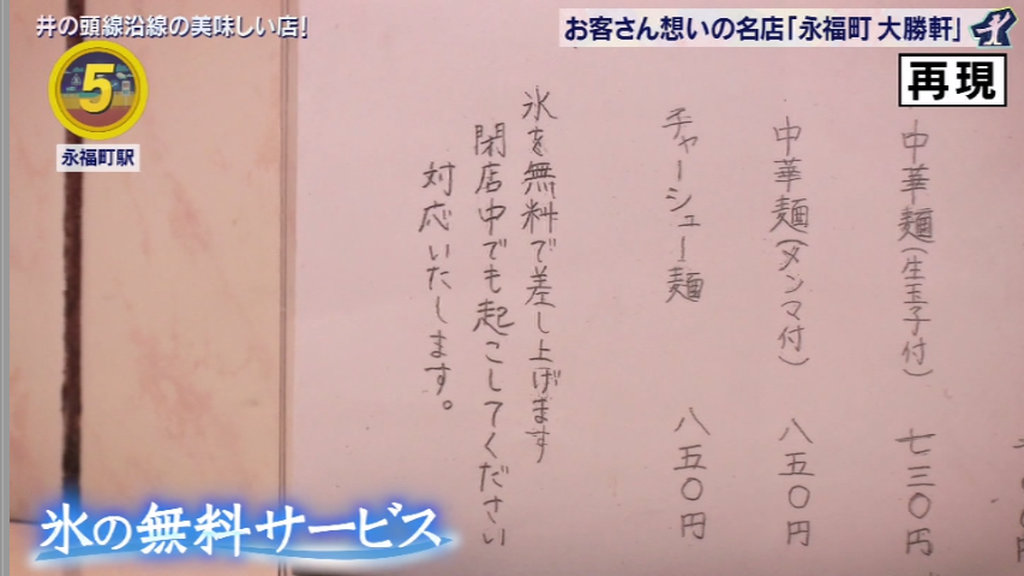 井の頭線沿線の美味しい店!
お客さん想いの名店「永福町 大勝軒」
再現
5
永福町駅
中華麺(生玉子付) 七三〇円
中華麺(メンマ付) 八五〇円
チャーシュー麺 八五〇円
氷を無料で差し上げます
閉店中でも起こしてください
対応いたします。
氷の無料サービス